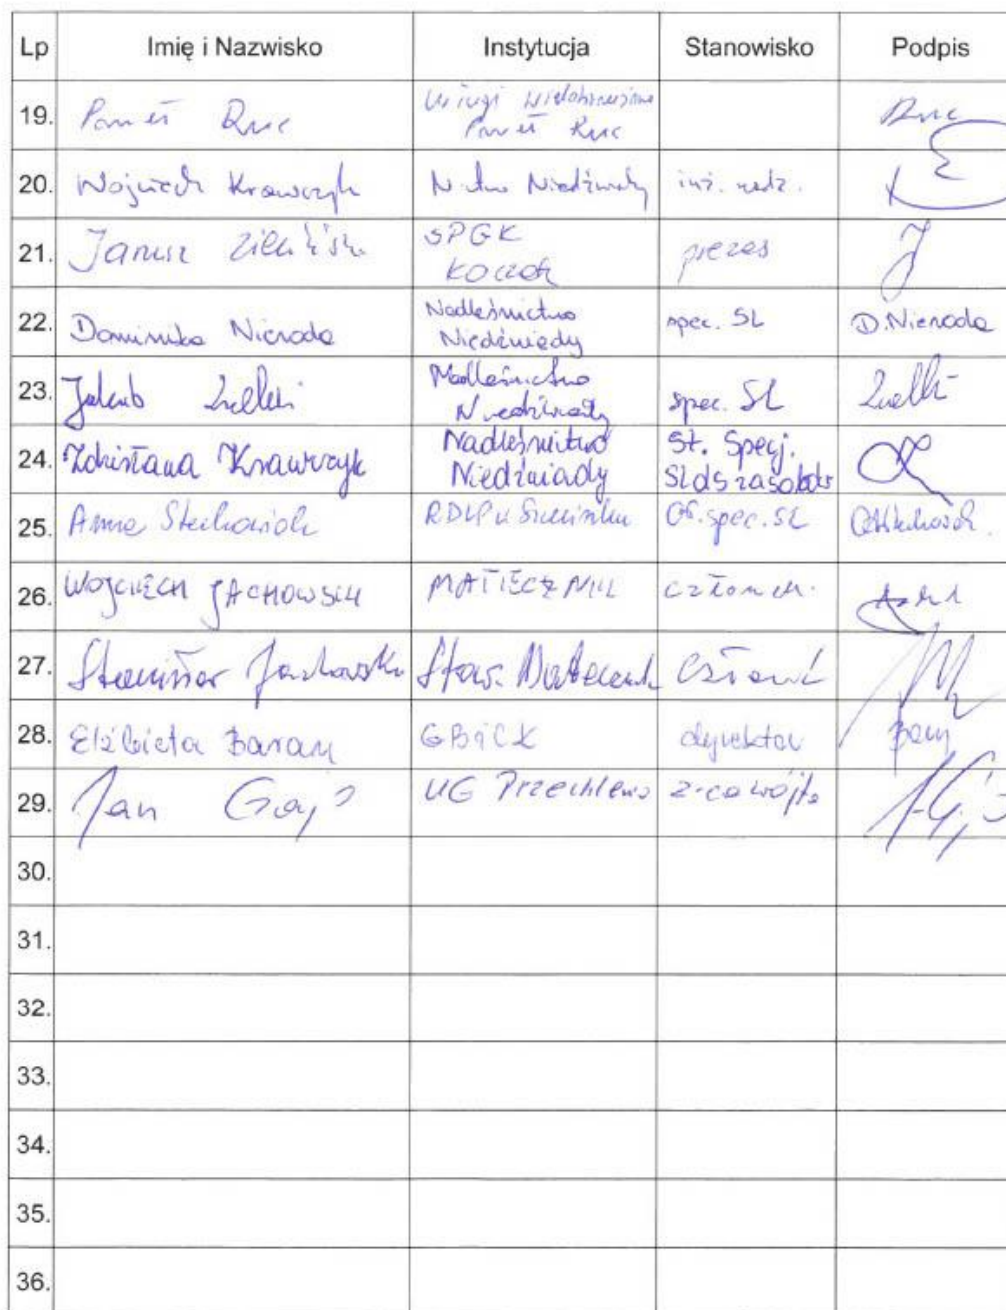 Lp Imię i Nazwisko Instytucja Stanowisko Podpis
19. Paweł Ruc Usługi Wielobranżowe Paweł Ruc Ruc
20. Wojciech Krawczyk N-ctwo Niedźwiady inż. nadz.
21. Janusz Zieliński SPGK Koczała prezes
22. Dominika Nieroda Nadleśnictwo Niedźwiady spec. SL D.Nieroda
23. Jakub Nadleśnictwo Niedźwiady spec. SL
24. Zdzisława Krawczyk Nadleśnictwo Niedźwiady St. Specj. SL ds zasobów
25. Anna Stachowiak RDLP w Szczecinku Gł. spec. SL
26. WOJCIECH JACHOWSKI MATECZNIK członek
27. Stanisław Jachowski Stow. Matecznik Członek
28. Elżbieta Baran GBiCK dyrektor
29. Jan Gaj UG Przechlewo z-ca wójta
30.
31.
32.
33.
34.
35.
36.